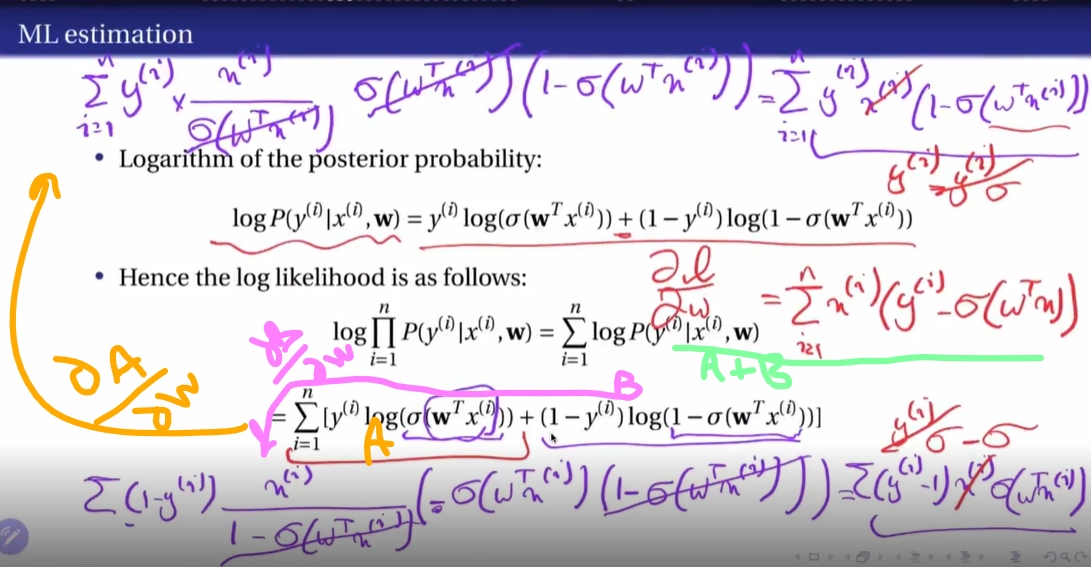 ML estimation
∑_{i=1}^{n} y^{(i)} × x^{(i)} / σ(w^T x^{(i)}) σ(w^T x^{(i)}) (1 - σ(w^T x^{(i)})) = ∑_{i=1}^{n} y^{(i)} x^{(i)} (1 - σ(w^T x^{(i)}))
• Logarithm of the posterior probability:
y^{(i)} - y^{(i)} σ
log P(y^{(i)}|x^{(i)}, w) = y^{(i)} log(σ(w^T x^{(i)})) + (1 − y^{(i)}) log(1 − σ(w^T x^{(i)}))
• Hence the log likelihood is as follows:
∂l/∂w = ∑_{i=1}^{n} x^{(i)} (y^{(i)} - σ(w^T x))
log ∏_{i=1}^{n} P(y^{(i)}|x^{(i)}, w) = ∑_{i=1}^{n} log P(y^{(i)}|x^{(i)}, w)
A+B
∂A/∂w
B
= ∑_{i=1}^{n} [y^{(i)} log(σ(w^T x^{(i)})) + (1 − y^{(i)}) log(1 − σ(w^T x^{(i)}))]
A
y^{(i)} σ - σ
∑ (1-y^{(i)}) x^{(i)} / 1 - σ(w^T x^{(i)}) (- σ(w^T x^{(i)}) (1 - σ(w^T x^{(i)}))) = ∑ (y^{(i)} - 1) x^{(i)} σ(w^T x^{(i)})